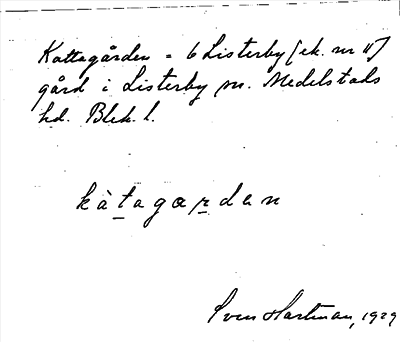 Kattagården = 6 Listerby [ek. nr 11]
gård i Listerby sn. Medelstads
hd. Blek. l.
kàtagarden
Sven Hartman, 1929